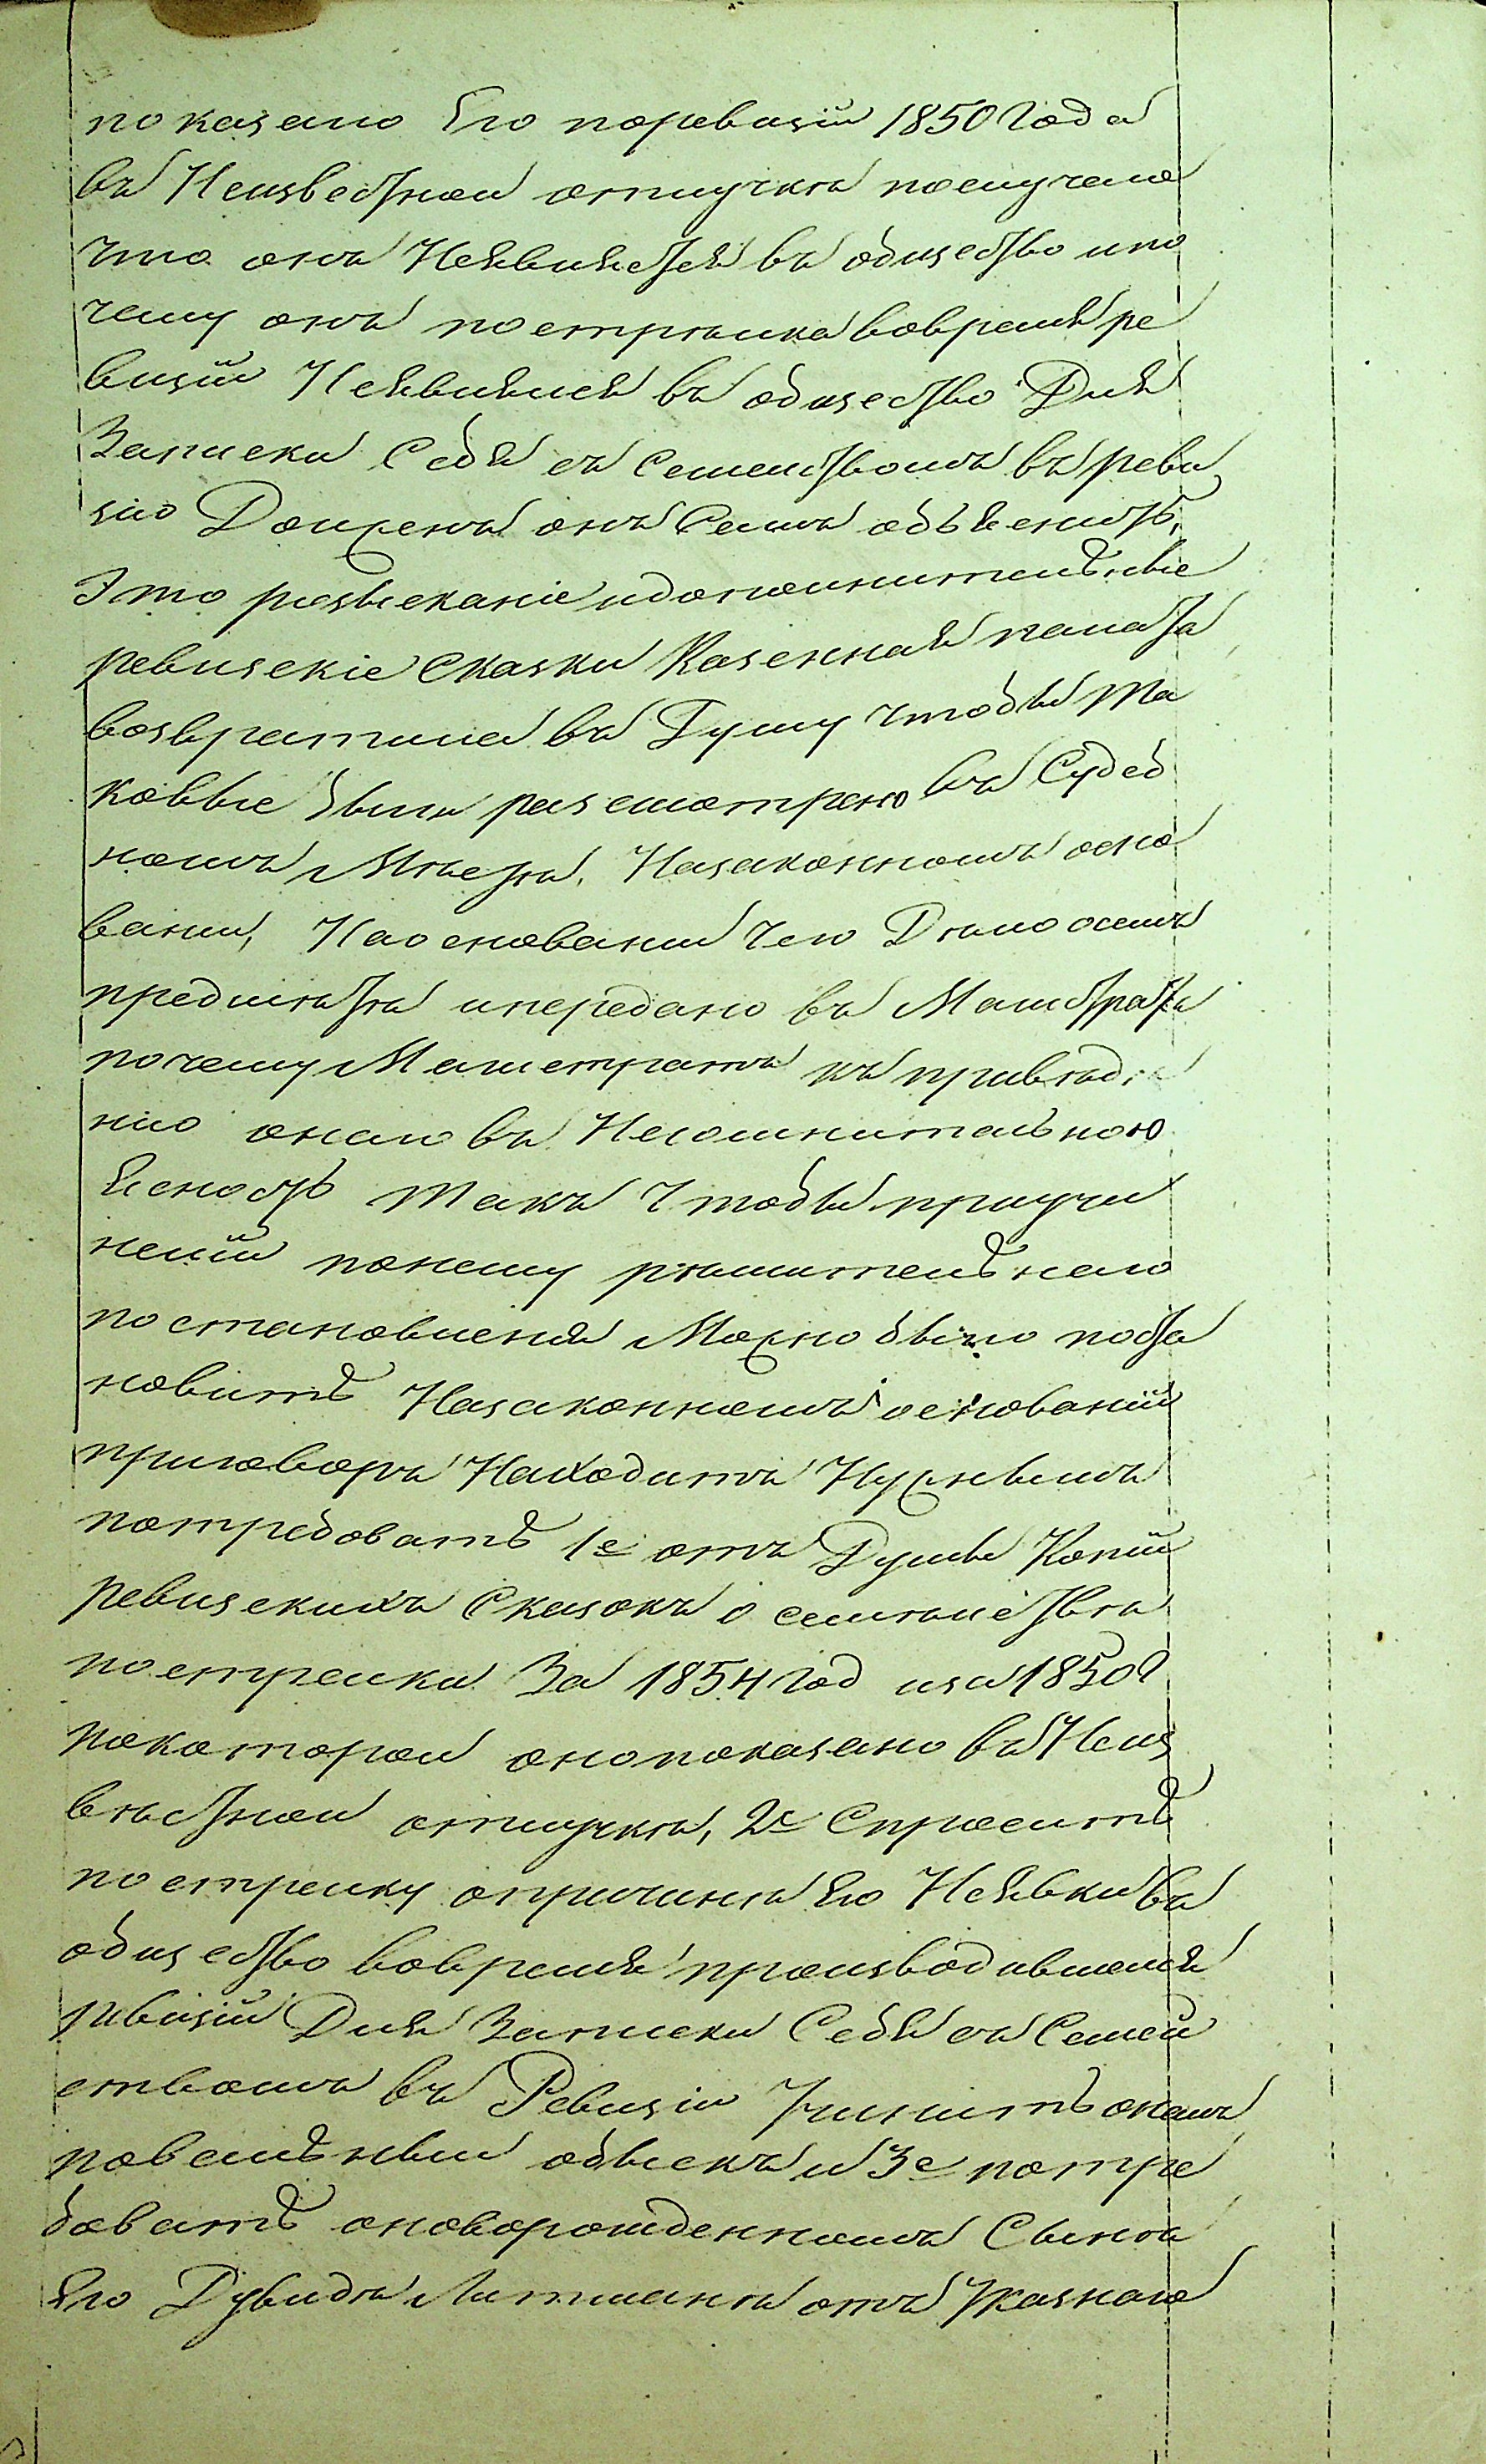 показано Его поревизіи 1850 года
въ Неизвестной отлучкѣ послучаю
что онъ Неявился въ общество ипо
чему онъ пострѣлка вовремя ре
визіи Неявился въ общество Для
Записки Себя съ Семействомъ въ реви
зію Долженъ онъ Самъ объяснить,
Это розысканіе идополнительные
ревизскіе Сказки Казенная палата
возвратила въ Думу чтобы та
ковые были разсмотрено въ Судеб
номъ Мѣстѣ. Назаконномъ осно
ваніи, Наоснованіи чего Дѣло осемъ
предметѣ ипередано въ Магистратъ
почему Магистратъ къ приведе
нію онаго въ Несомнительною
Ясность такъ Чтобы приучи
неніи понему рѣшительнаго
постановленія Можно было поста
новить Назаконномъ основаніи
приговоръ Находитъ Нужнымъ
потребовать 1е отъ Думы Копіи
ревизскихъ Сказокъ о семѣйствѣ
пострелки За 1854 год иза 1850
покоторой онопоказано въ Неиз
вѣстной отлучкѣ, 2е Спросить
пострелку опричинѣ Его Неявки въ
общество вовремя производившейся
ревизіи Для Записки Себя съ Семей
ствомъ въ Ревизію Учинить онемъ
повальный обыскъ и 3е потре
бовать оноворожденномъ Сынѣ
Его Дувидѣ Литманѣ отъ Указнаго